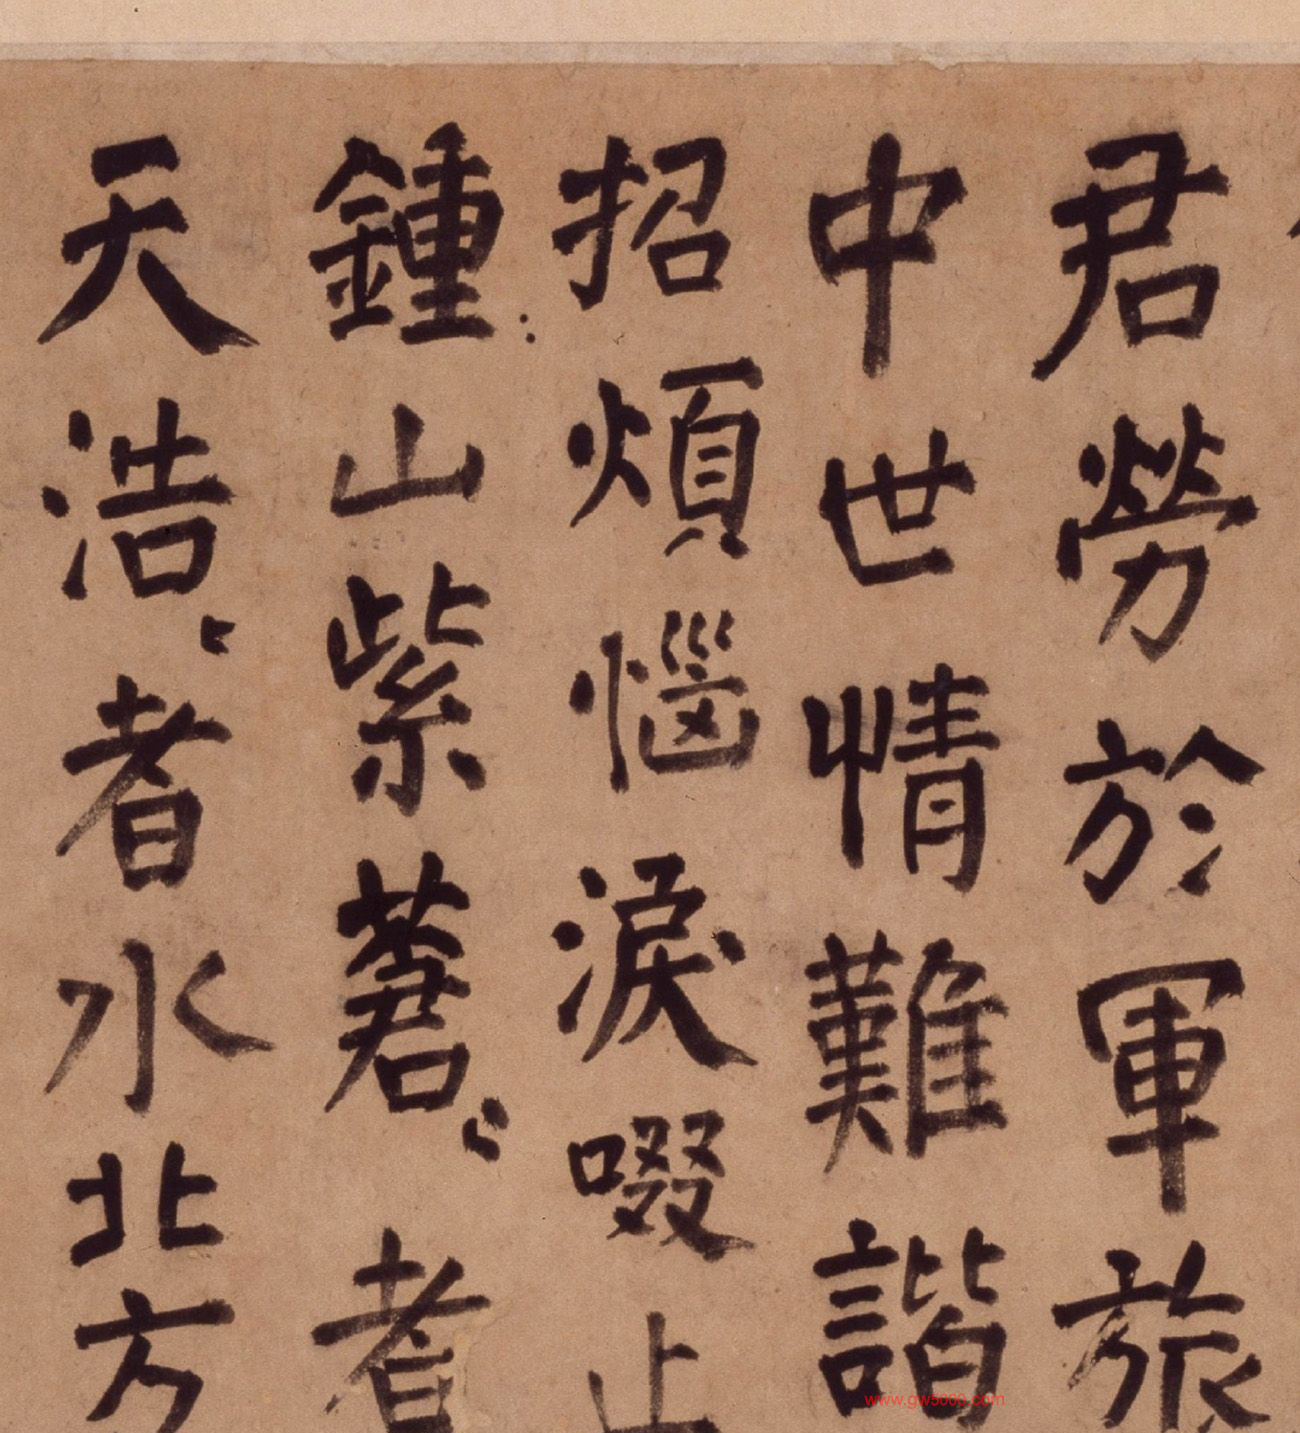 君勞於軍旅
中世情難諧
招煩惱淚啜止
鍾山紫蒼〻者
天浩〻者水北方
www.gw5000.com